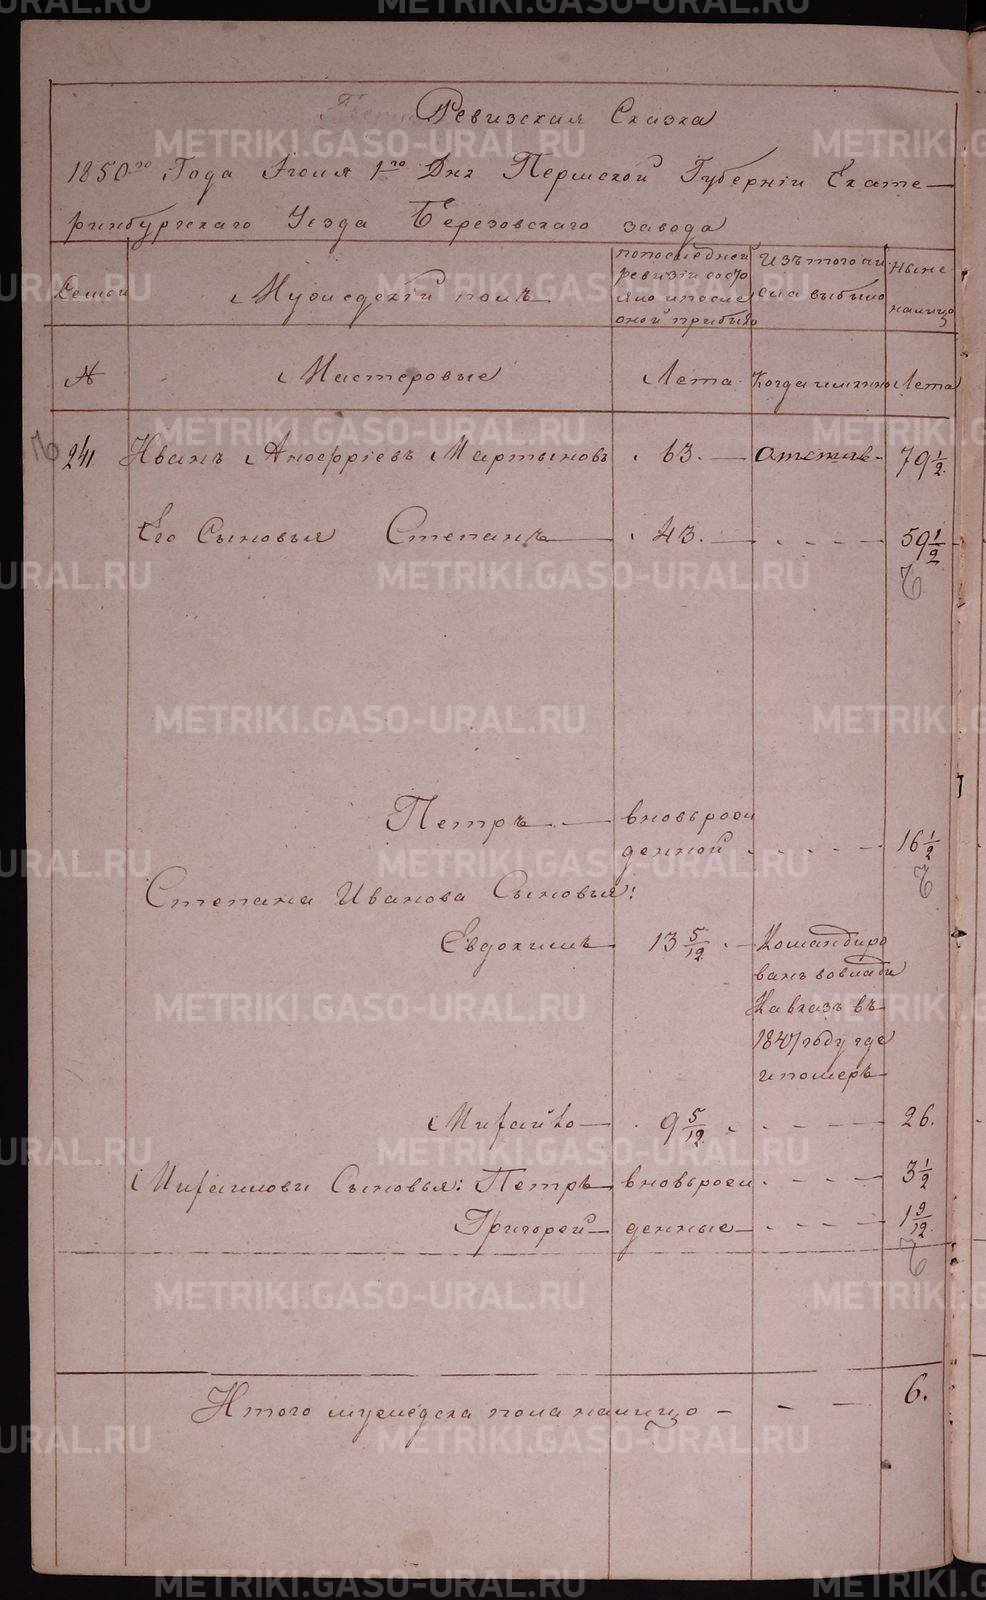 Ревизская Сказка
1850го Года Июля 1го Дня Пермской Губернiи Екате-
ринбургскаго Уезда Березовскаго завода
Семьи
Мужедскiй полъ
попоследней
ревизiи состо
яло ипосле
оной прибыло
Изътого чи
сла выбыло
Ныне
налицо
№
Мастеровые
Лета
Когда имянно
Лета
241
Иванъ Анофрiевъ Мартыновъ
63.
отстав-
79 1/2
Его Сыновья Степанъ
43.
59 1/2
Петръ
вновьрож
денной
16 1/2
Степана Иванова Сыновья:
Евдокимъ
13 5/12
Командиро
ванъ вовлади
Кавказъ въ
1847 году где
ипомеръ
Михайло
9 5/12
26.
Михаиловы Сыновья: Петръ
вновьрож
3 1/2
Григорей
денные
1 9/12
Итого мужедска пола налицо
6.
METRIKI.GASO-URAL.RU